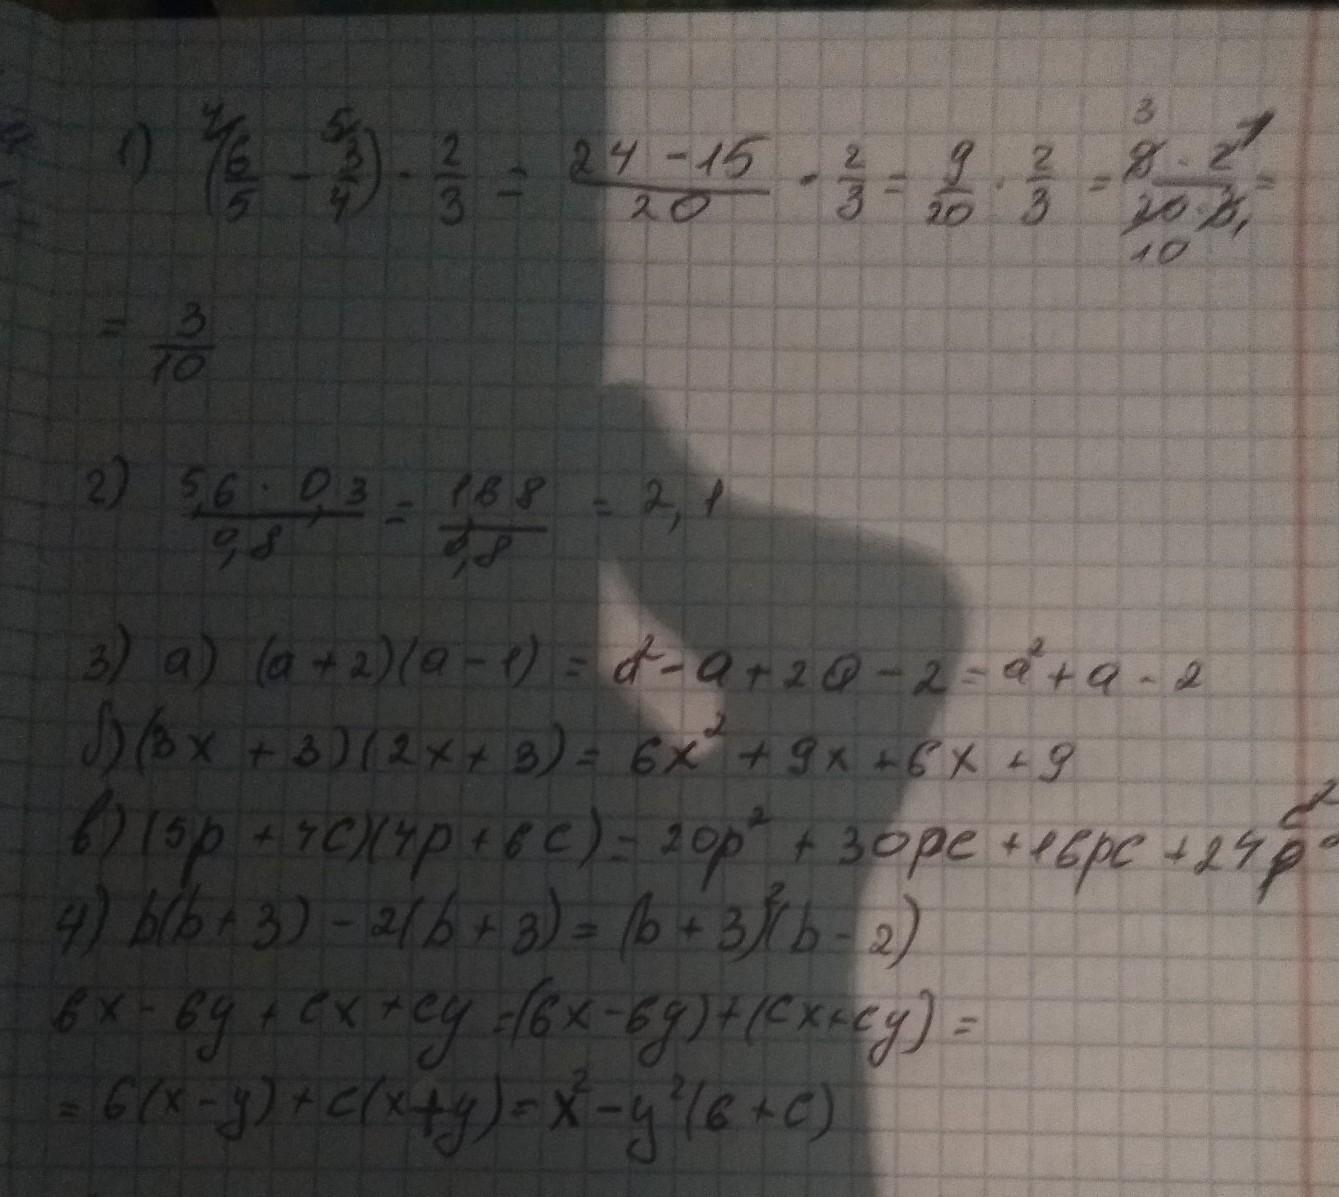 1) (6/5 - 3/4) · 2/3 = (24 - 15)/20 · 2/3 = 9/20 · 2/3 = (9 · 2)/(20 · 3) =
= 3/10
2) (5,6 · 0,3)/0,8 = 1,68/0,8 = 2,1
3) а) (a + 2)(a - 1) = a² - a + 2a - 2 = a² + a - 2
б) (3x + 3)(2x + 3) = 6x² + 9x + 6x + 9
в) (5p + 4c)(4p + 6c) = 20p² + 30pc + 16pc + 24c²
4) b(b + 3) - 2(b + 3) = (b + 3)²(b - 2)
6x - 6y + cx + cy = (6x - 6y) + (cx + cy) =
= 6(x - y) + c(x + y) = x² - y²(6 + c)